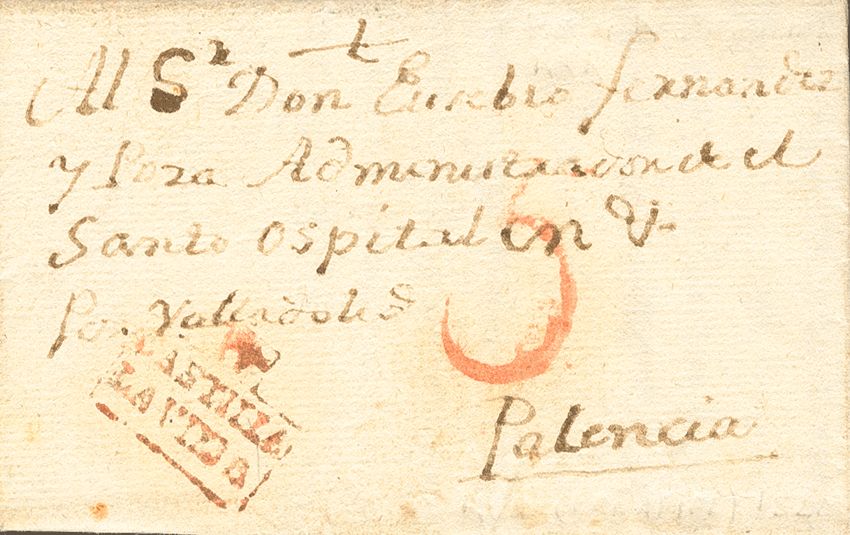 Al Sr Don Eusebio fernandez
y Poza Administrador de el
Santo Ospital en V.
Por Valladoled
CASTILLA
LA VIEJA
5
Palencia